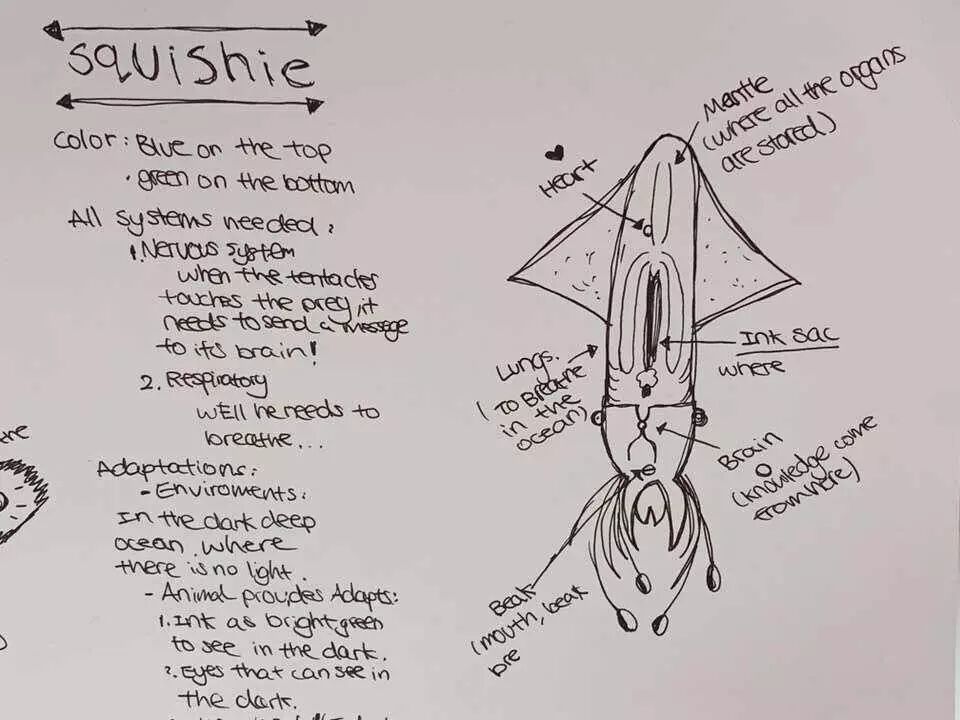 squishie
Color: Blue on the top
• green on the bottom
All systems needed:
1. Nervous system
when the tentacles
touches the prey, it
needs to send a message
to its brain!
2. Respiratory
well he needs to
breathe...
Adaptations:
- Enviroments:
In the dark deep
ocean where
there is no light.
- Animal provides Adapts:
1. Ink as bright green
to see in the dark.
2. Eyes that can see in
the dark.
Mantle
(where all the organs
are stored)
Heart
Ink sac
where
Lungs.
(To Breathe
in the
ocean)
Brain
(knowledge come
from here)
Beak
(mouth, beak